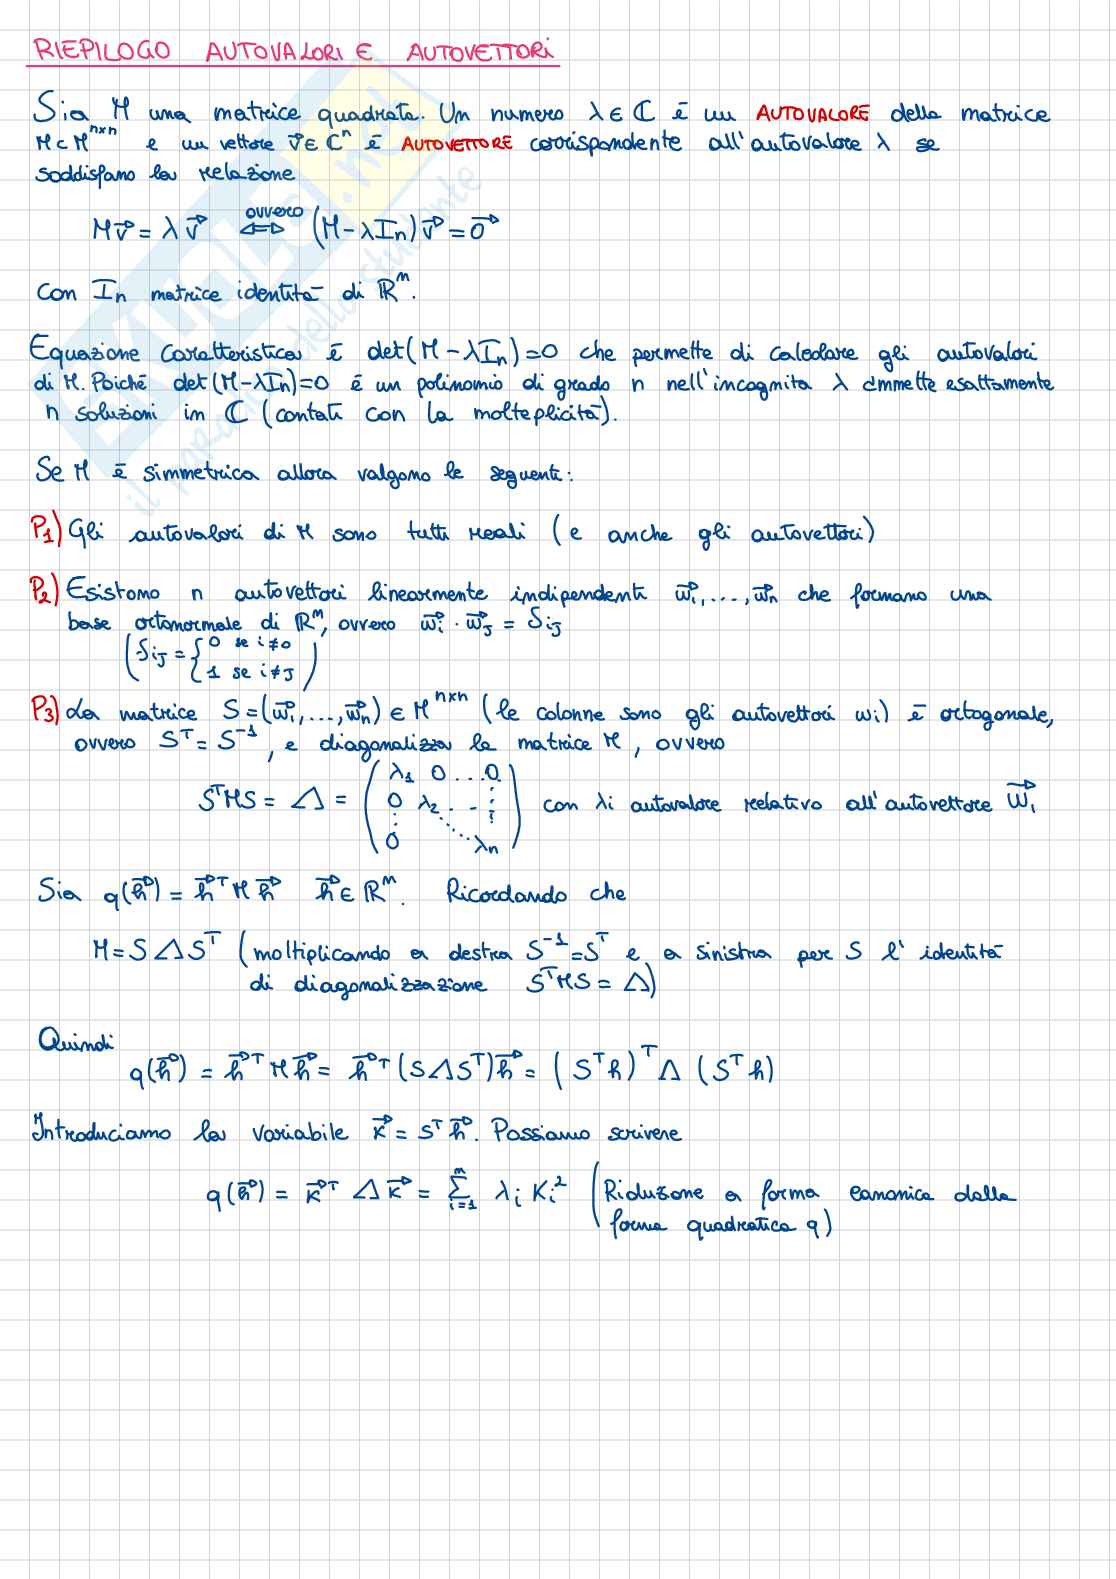 RIEPILOGO AUTOVALORI E AUTOVETTORI
Sia M una matrice quadrata. Un numero λ ∈ ℂ è un AUTOVALORE della matrice
M ⊂ M^{n×n} e un vettore v⃗ ∈ ℂ^n è AUTOVETTORE corrispondente all'autovalore λ se
soddisfano la relazione
Mv⃗ = λv⃗ ⟺ (ovvero) (M-λIn)v⃗ = 0⃗
Con In matrice identità di ℝ^n.
Equazione caratteristica è det(M-λIn)=0 che permette di calcolare gli autovalori
di M. Poiché det(M-λIn)=0 è un polinomio di grado n nell'incognita λ ammette esattamente
n soluzioni in ℂ (contati con la molteplicità).
Se M è simmetrica allora valgono le seguenti:
P1) Gli autovalori di M sono tutti reali (e anche gli autovettori)
P2) Esistono n autovettori linearmente indipendenti w⃗1,...,w⃗n che formano una
base ortonormale di ℝ^n, ovvero w⃗i · w⃗j = δij
(δij = {0 se i≠0
1 se i≠j)
P3) La matrice S=(w⃗1,...,w⃗n) ∈ M^{n×n} (le colonne sono gli autovettori wi) è ortogonale,
ovvero S^T = S^{-1}, e diagonalizza la matrice M, ovvero
S^T M S = Δ = (λ1 0 ... 0
0 λ2 . . ⋮
⋮ ⋱
0 λn) con λi autovalore relativo all'autovettore w⃗i
Sia q(h⃗) = h⃗^T M h⃗ h⃗ ∈ ℝ^n. Ricordando che
M = S Δ S^T (moltiplicando a destra S^{-1}=S^T e a sinistra per S l'identità
di diagonalizzazione S^T M S = Δ)
Quindi
q(h⃗) = h⃗^T M h⃗ = h⃗^T (S Δ S^T) h⃗ = (S^T h)^T Λ (S^T h)
Introduciamo la variabile k⃗ = S^T h⃗. Possiamo scrivere
q(h⃗) = k⃗^T Δ k⃗ = Σ_{i=1}^{n} λi Ki² (Riduzione a forma canonica della
forma quadratica q)